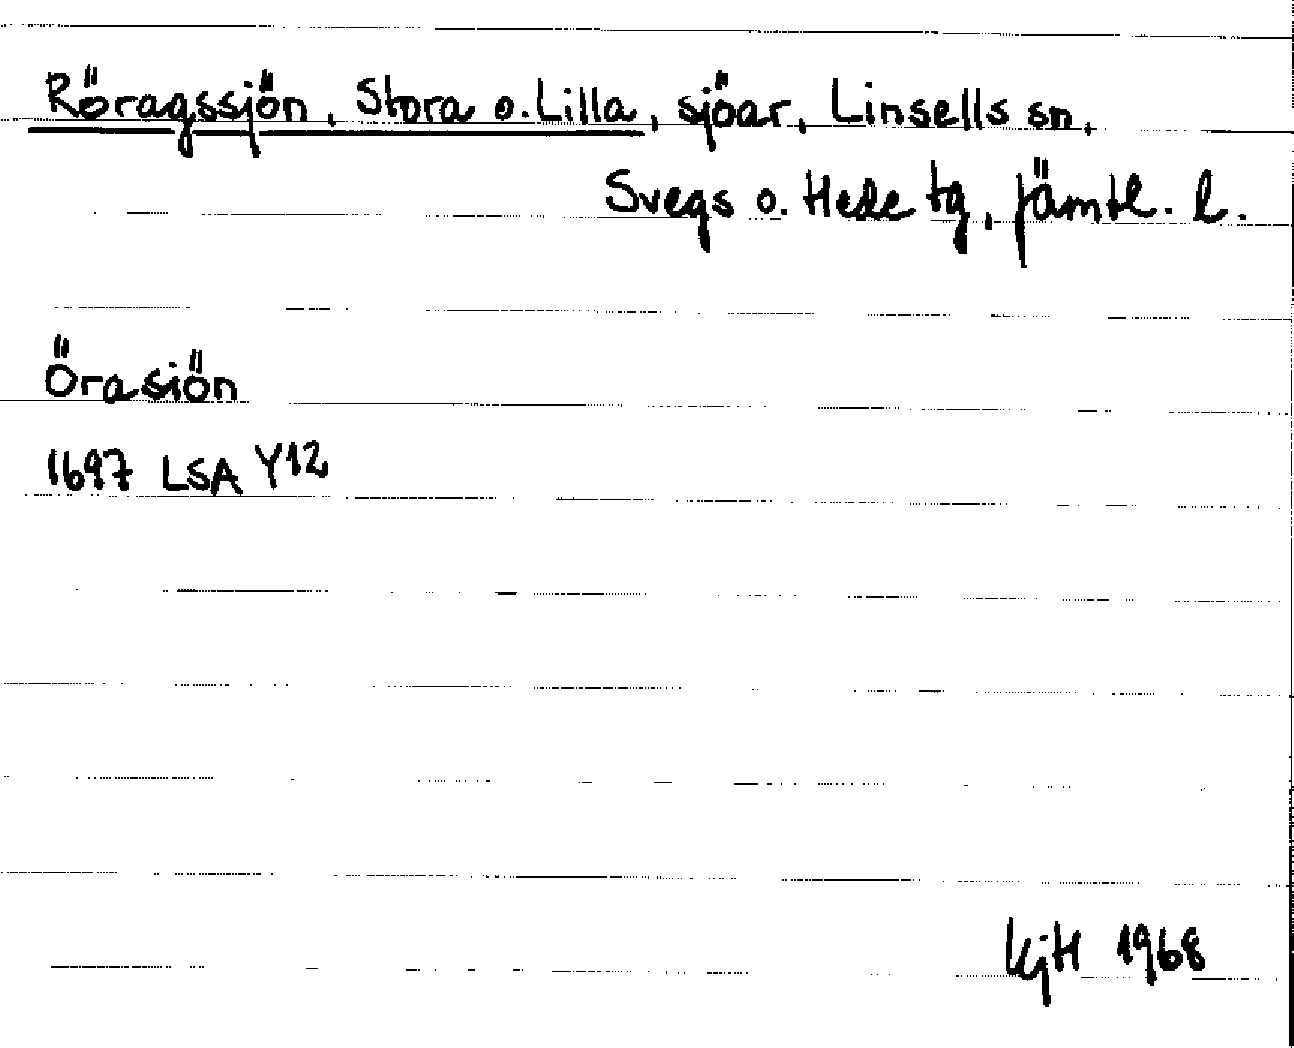 Röragssjön, Stora o. Lilla, sjöar, Linsells sn,
Svegs o. Hede tg, Jämtl. l.
Örasiön
1697 LSA Y12
KjH 1968